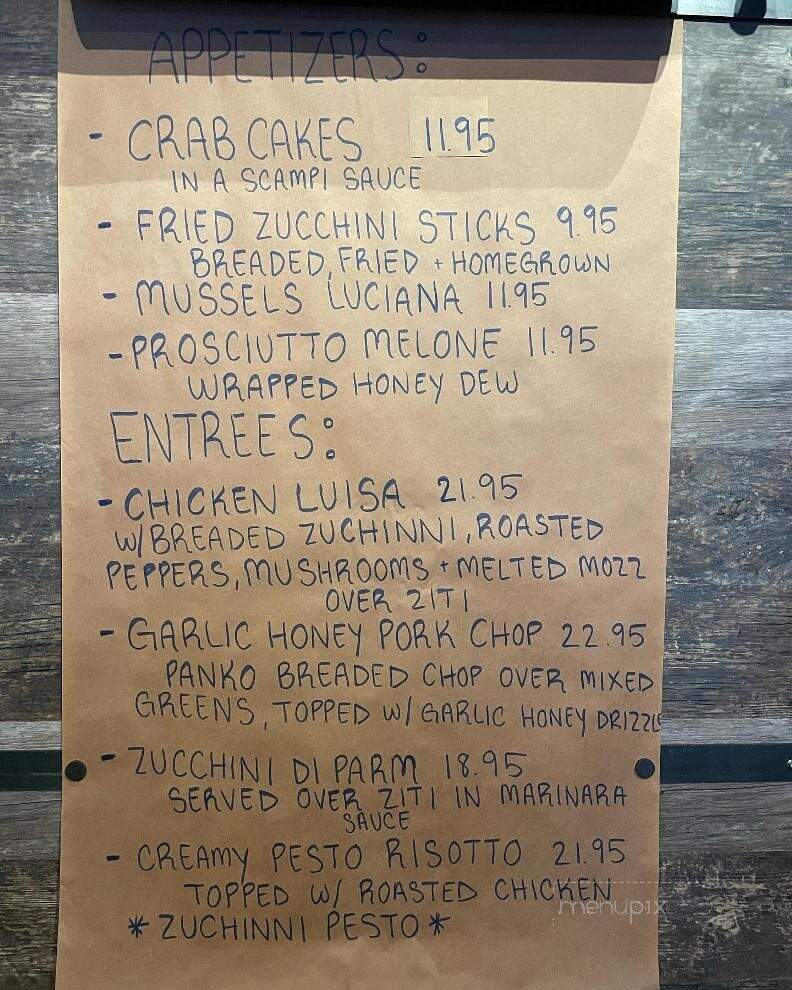 APPETIZERS:
- CRAB CAKES 11.95
IN A SCAMPI SAUCE
- FRIED ZUCCHINI STICKS 9.95
BREADED, FRIED + HOMEGROWN
- MUSSELS LUCIANA 11.95
- PROSCIUTTO MELONE 11.95
WRAPPED HONEY DEW
ENTREES:
- CHICKEN LUISA 21.95
W/BREADED ZUCHINNI, ROASTED
PEPPERS, MUSHROOMS + MELTED MOZZ
OVER ZITI
- GARLIC HONEY PORK CHOP 22.95
PANKO BREADED CHOP OVER MIXED
GREENS, TOPPED W/ GARLIC HONEY DRIZZLE
- ZUCCHINI DI PARM 18.95
SERVED OVER ZITI IN MARINARA
SAUCE
- CREAMY PESTO RISOTTO 21.95
TOPPED W/ ROASTED CHICKEN
* ZUCHINNI PESTO *
menupix